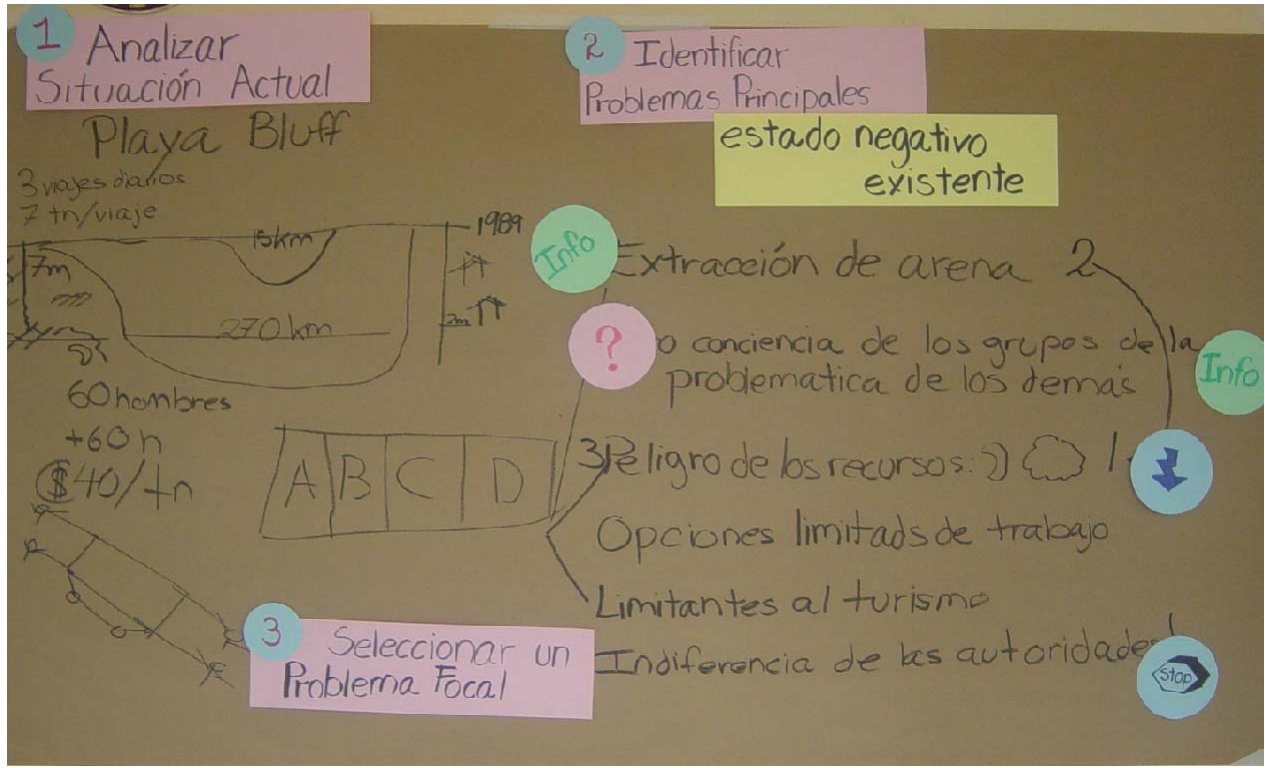 1 Analizar
Situación Actual
Playa Bluff
3 viajes diarios
7 tn/viaje
15km
1989
7m
270 km
2m
60 hombres
+60 h
$40/tn
A B C D
2 Identificar
Problemas Principales
estado negativo
existente
Info
Extracción de arena 2
?
o conciencia de los grupos de la
problematica de los demás
Info
3 Peligro de los recursos: 1
Opciones limitads de trabajo
Limitantes al turismo
Indiferencia de las autoridades!
Stop
3 Seleccionar un
Problema Focal